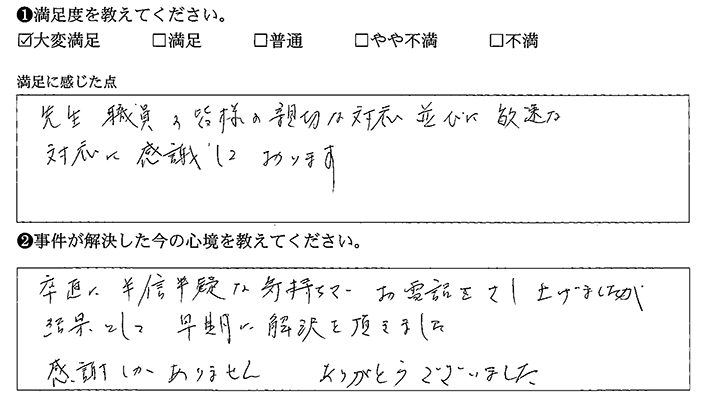 ❶満足度を教えてください。
☑大変満足 □満足 □普通 □やや不満 □不満
満足に感じた点
先生 職員の皆様の親切な対応 並びに 敏速な
対応に 感謝しております
❷事件が解決した今の心境を教えてください。
卒直に 半信半疑な気持ちで お電話をさし上げましたが
結果として 早期に解決を頂きました
感謝しかありません ありがとうございました